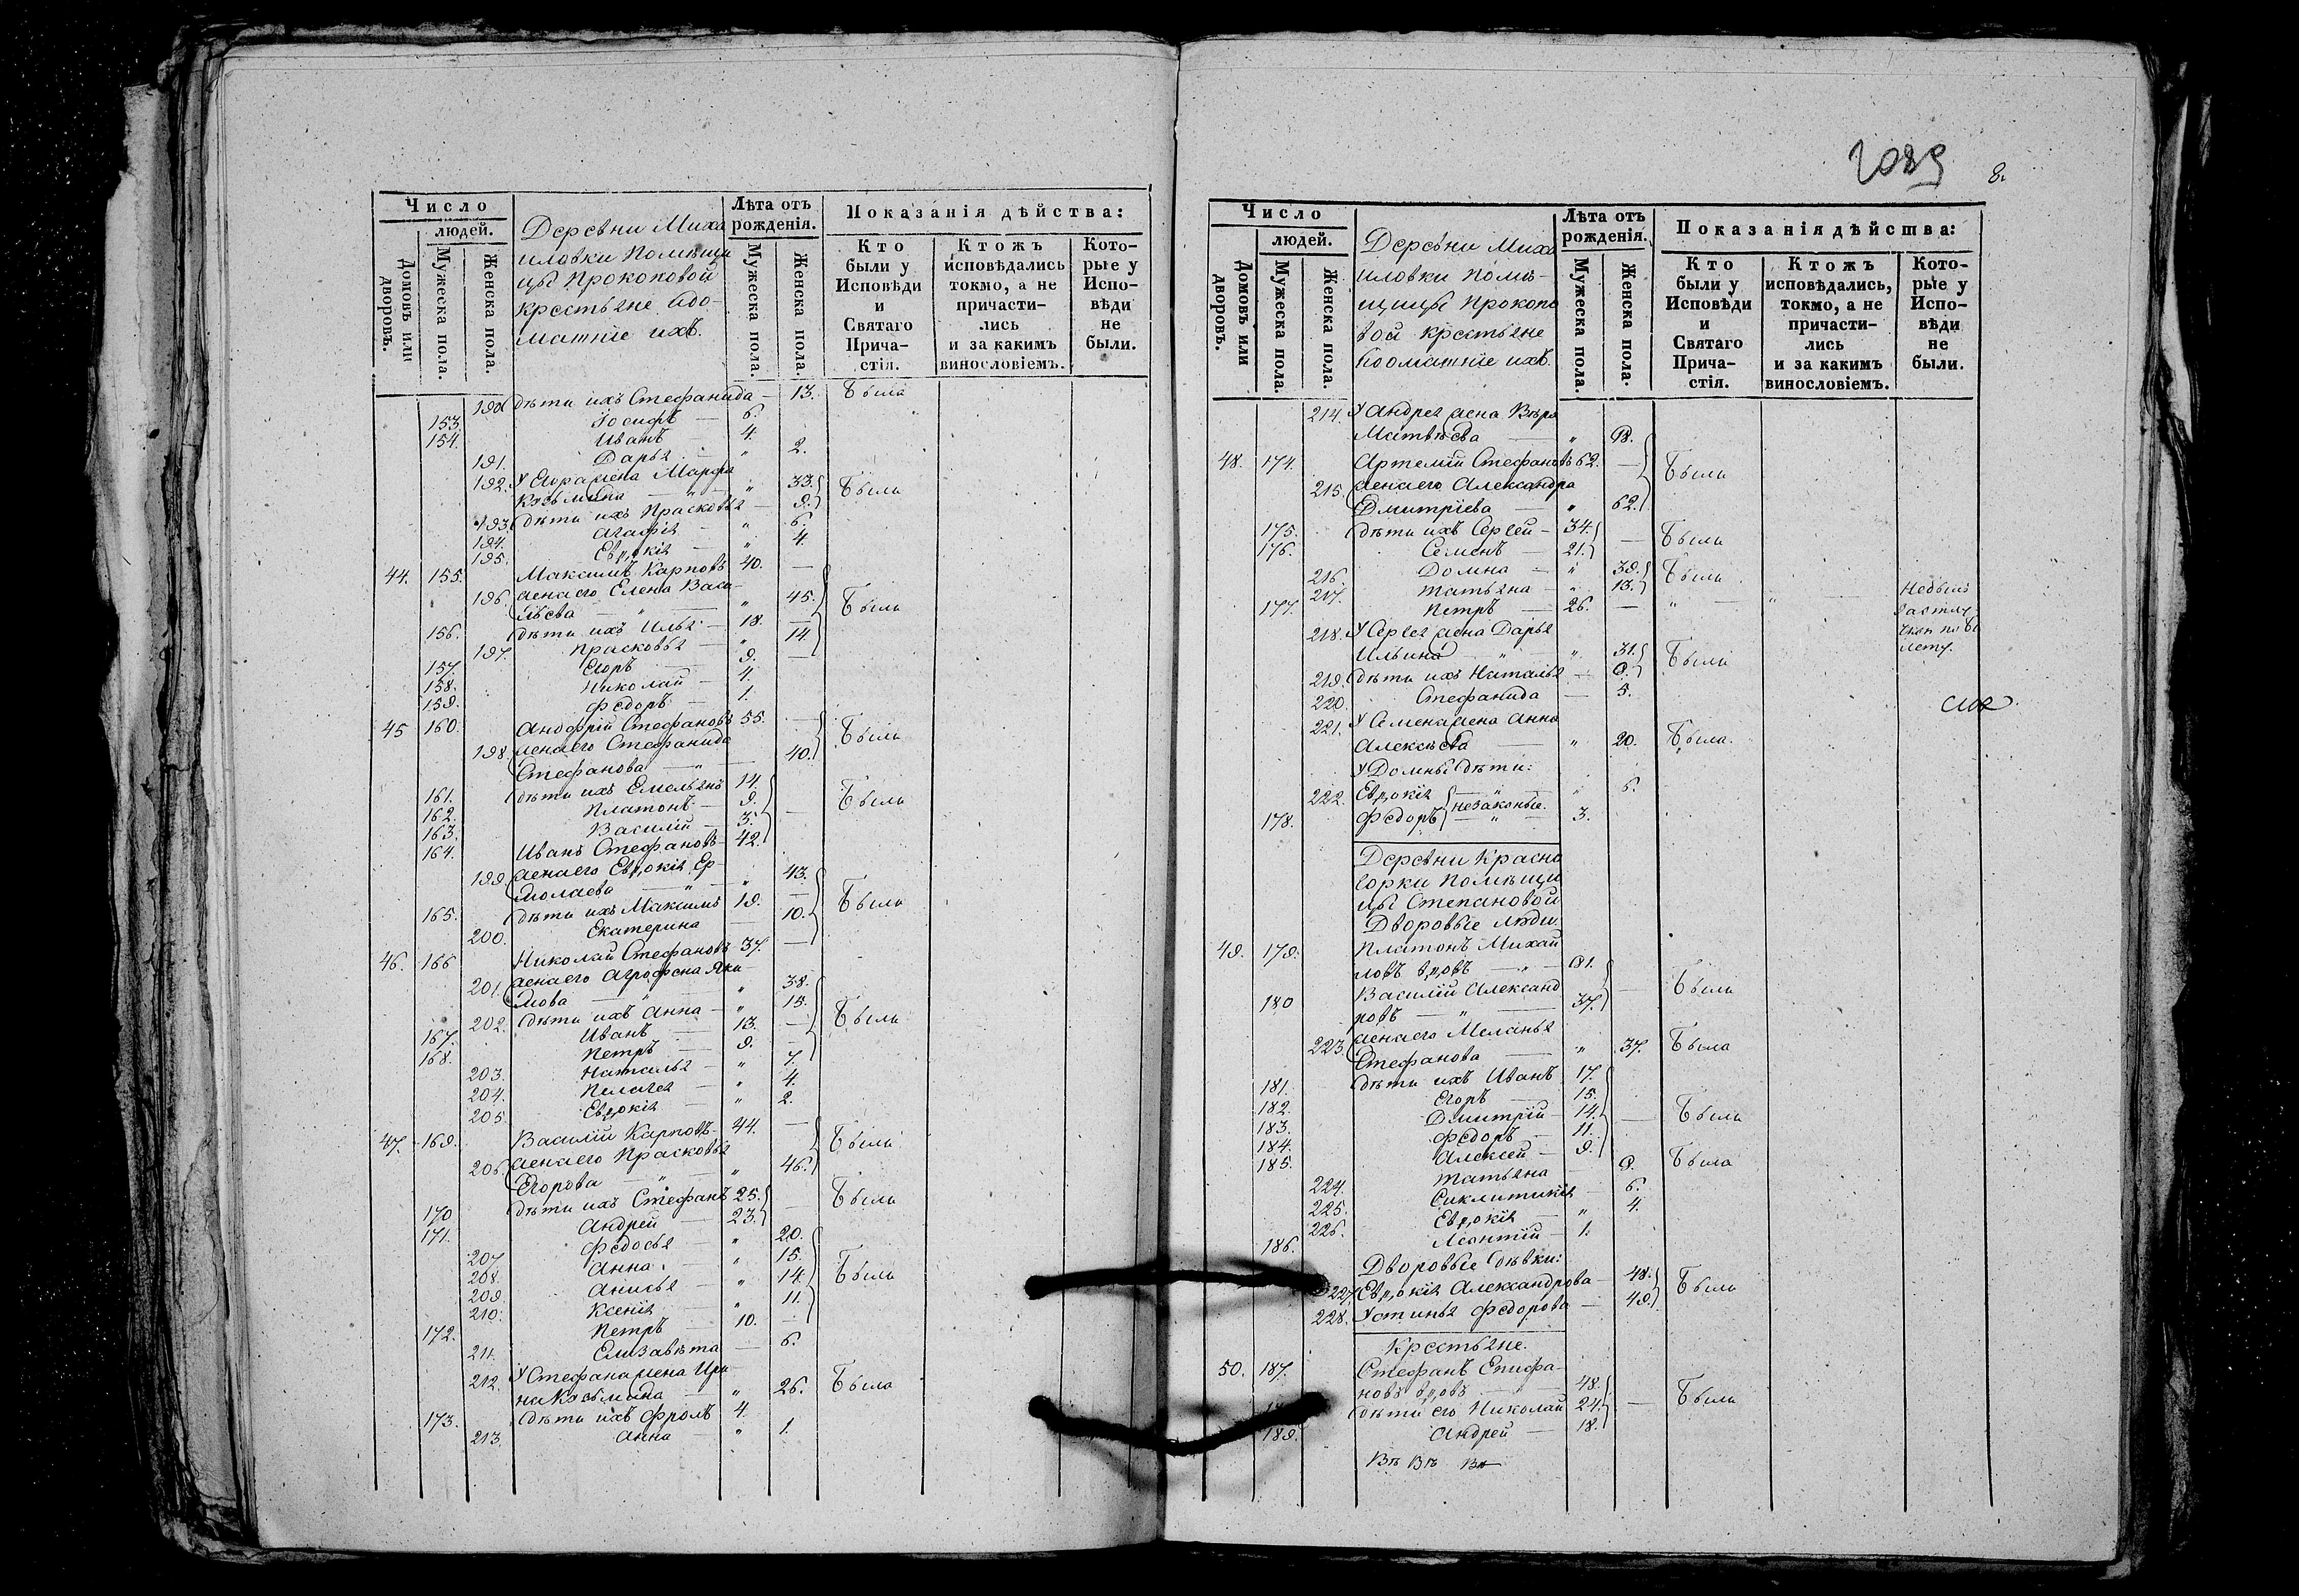 Число
людей.
Домовъ или дворовъ.
Мужеска пола.
Женска пола.
Деревни Миха
иловки Помѣщи
цы Прокоповой
крестьяне и до-
матніе ихъ.
Лѣта отъ
рожденія.
Мужеска пола.
Женска пола.
Показанія дѣйства:
Кто
были у
Исповѣди
и
Святаго
Прича-
стія.
Ктожъ
исповѣдались
токмо, а не
причасти-
лись
и за какимъ
винословіемъ.
Кото-
рые у
Испо-
вѣди
не
были.
190 дѣти ихъ Стефанида — 13. Была
153. Іосифъ — 6.
154. Иванъ — 4.
191. Дарья — " 2.
192. У Егора жена Марфа
Козьмина — " — " 33. Были
193. дѣти ихъ Прасковья — 9.
194. Агафія — " 6.
195. Евдокія — " 4.
44. 155. Максимъ Карповъ 40. —
196. жена его Елена Васи-
льева — " — " 45. Были
156. дѣти ихъ Илья — 18. —
197. Прасковья — " 14.
157. Егоръ — 9. —
158. Николай — 4.
159. Федоръ — 1.
45 160. Анофрій Стефановъ 55. —
198. жена его Стефанида Были
Стефанова — " — 40.
161. дѣти ихъ Емельянъ 14.
162. Платонъ — 9. — Были
163. Василій — 3.
164. Иванъ Стефановъ — 42.
199. жена его Евдокія Ер-
молаева — " — " 43.
165. дѣти ихъ Максимъ 19. — Были
200. Екатерина — 10.
46. 166 Николай Стефановъ 37. —
201. жена его Агрофена Яки-
мова — " — " 38.
202. дѣти ихъ Анна — " 15. Были
167. Иванъ — 13. —
168. Петръ — 9. —
203. Наталья — " 7.
204. Пелагея — " 4.
205. Евдокія — " 2.
47. 169. Василій Карповъ — 44. —
206. жена его Прасковья Были
Егорова — " — " 46.
170 дѣти ихъ Стефанъ 25. — Были
171. Андрей — 23.
207 Федосья — " 20.
208. Анна — " 15.
209. Анисья — " 14. Были
210. Ксенія — " 11.
172. Петръ — 10. —
211. Елизавѣта — 6.
212. У Стефана жена Ири
на Козьмина — " 26. Была
173. дѣти ихъ Фролъ 4.
213. Анна — " 1.
2089
8.
Число
людей.
Домовъ или дворовъ.
Мужеска пола.
Женска пола.
Деревни Миха
иловки Помѣ-
щицы Прокопо
вой крестьяне
и доматніе ихъ.
Лѣта отъ
рожденія.
Мужеска пола.
Женска пола.
Показанія дѣйства:
Кто
были у
Исповѣди
и
Святаго
Прича-
стія.
Ктожъ
исповѣдались,
токмо, а не
причасти-
лись
и за какимъ
винословіемъ.
Кото-
рые у
Испо-
вѣди
не
были.
214. У Андрея жена Вѣра
Матвѣева — "
48. 174. Артемій Стефановъ 62. — Были
215. жена его Александра
Дмитріева — " 62.
175. дѣти ихъ Сергей — 34. — Были
176. Семенъ — 21.
216. Домна — " 39. Были
217. Татьяна — " 13.
177. Петръ — 26. — " — " — Небылъ
218. У Сергея жена Дарья
Ильина — " — " 31. Были
219. дѣти ихъ Наталья — 9.
220. Стефанида — 5.
221. У Семена жена Анна
Алексѣева — " 20. Была.
У Домны дѣти:
222. Евдокія — " — " 6.
незаконные.
178. Федоръ — " — 3.
Деревни Красно
горки помѣщи
цы Степановой
Дворовые люди
49. 179. Платонъ Михай
ловъ вдовъ — " —
180 Василій Александ Были
ровъ — " — 37.
223. жена его Меланья
Стефанова — " 37. Была
181. дѣти ихъ Иванъ 17.
182. Егоръ — 15.
183. Дмитрій — 14. — Были
184. Федоръ — 11.
185. Алексей — 9.
224. Татьяна — 9. Была
225. Сиклитикія — 6.
226. Евдокія — " 4.
186. Леонтій — 1.
Дворовые дѣвки:
227. Евдокія Александрова — 48. Были
228. Устинья Федорова — 49.
Крестьяне.
50. 187. Стефанъ Епифа-
новъ вдовъ — 48.
дѣти его Николай 24. — Были
189. Андрей — 18.